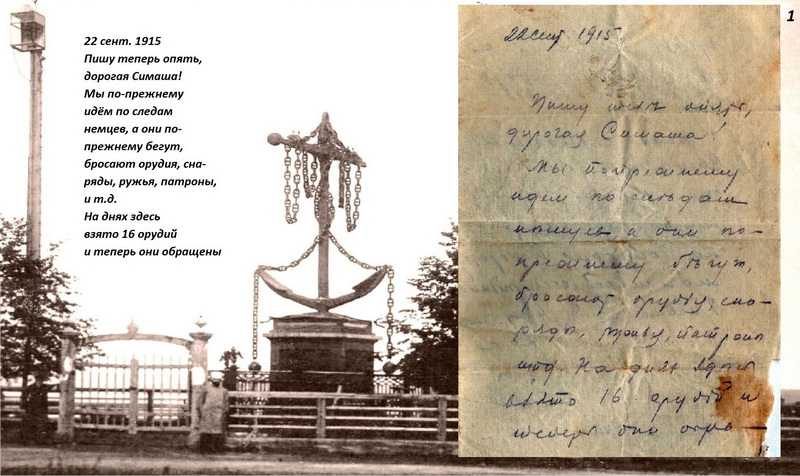 22 сент. 1915
Пишу теперь опять,
дорогая Симаша!
Мы по-прежнему
идём по следам
немцев, а они по-
прежнему бегут,
бросают орудия, сна-
ряды, ружья, патроны,
и т.д.
На днях здесь
взято 16 орудий
и теперь они обращены
1
22 сент 1915
Пишу теперь опять,
дорогая Симаша!
Мы попрежнему
идем по следам
немцев а они по-
прежнему бегут,
бросают орудія, сна-
ряды, ружья, патроны
итд. На днях здесь
взято 16 орудій и
теперь они обра-